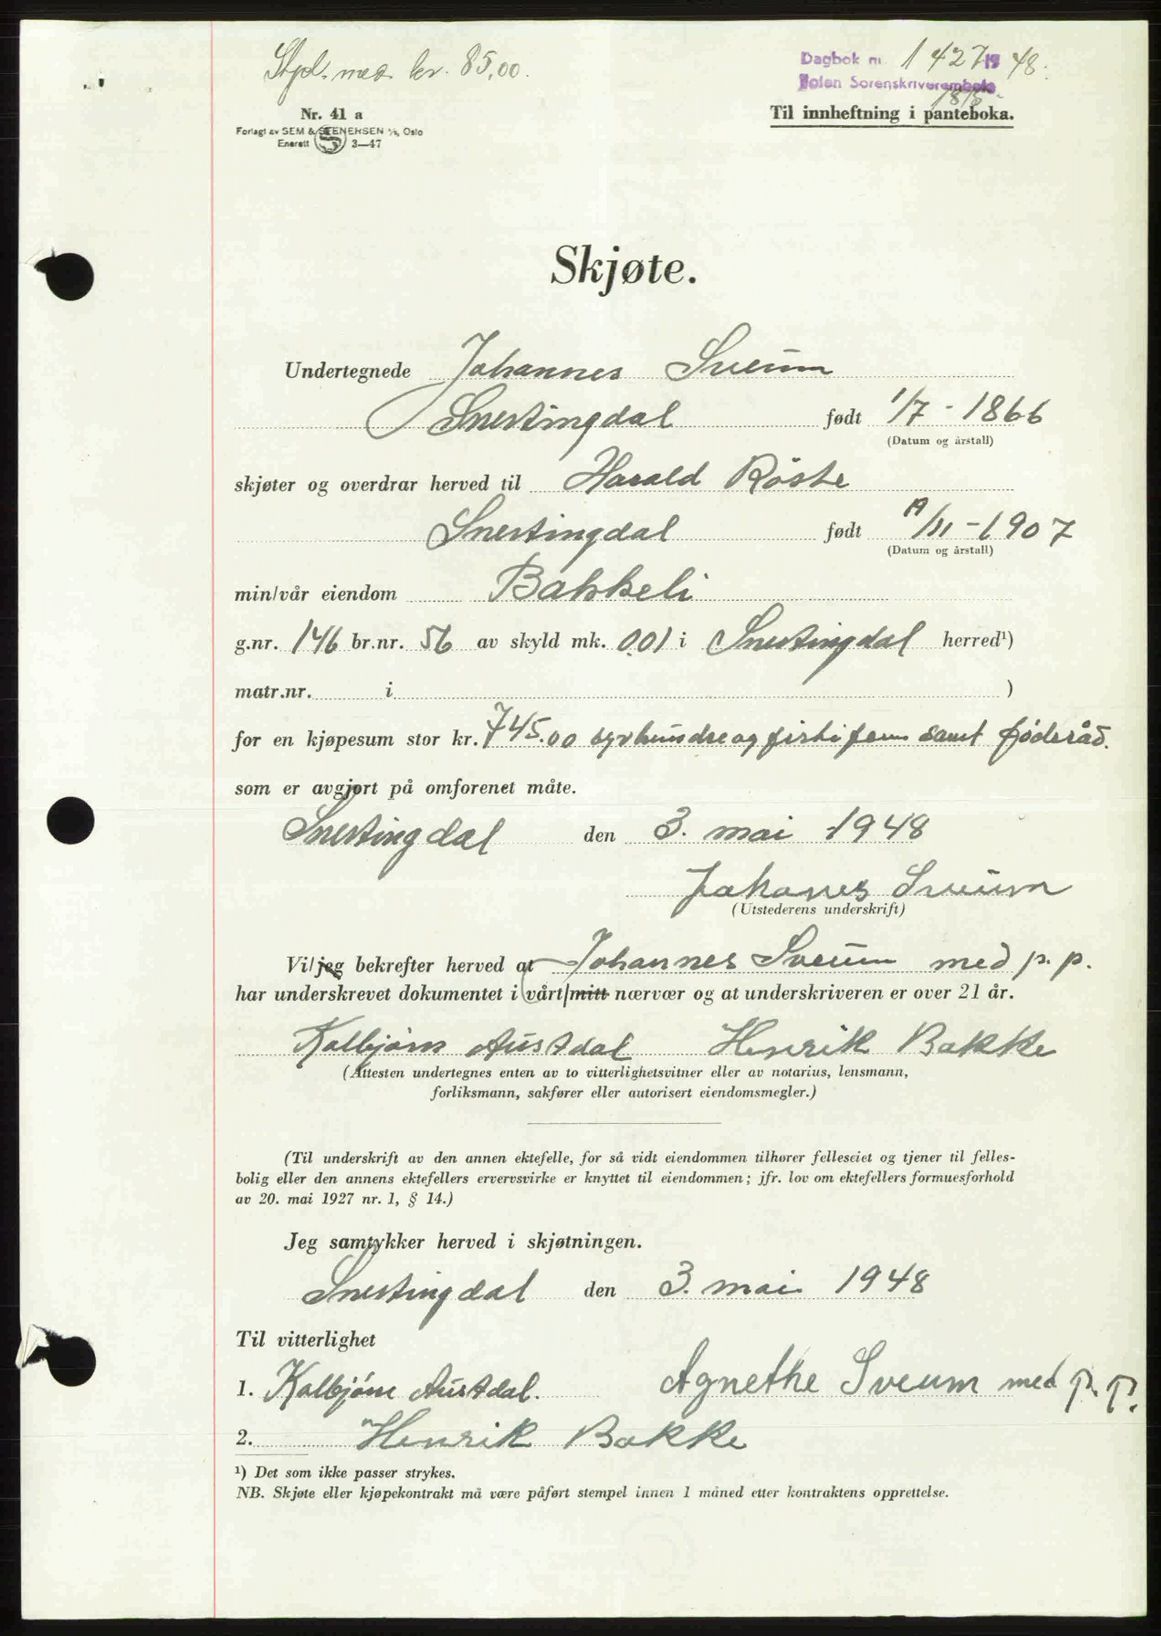 Stpl. med kr. 85,00.
Dagbok nr. 1427 1948.
Toten Sorenskriverembete
18/5
Nr. 41 a
Til innheftning i panteboka.
Forlagt av SEM & STENERSEN A/S, Oslo
Enerett 3—47
Skjøte.
Undertegnede Johannes Sveum
Snertingdal født 1/7 - 1866
(Datum og årstall)
skjøter og overdrar herved til Harald Röste
Snertingdal født /11 - 1907
(Datum og årstall)
min/vår eiendom Bakkeli
g.nr. 146 br.nr. 56 av skyld mk. 0.01 i Snertingdal herred¹)
matr.nr. i )
for en kjøpesum stor kr. 745.00 syvhundreogførtifem samt föderåd.
som er avgjort på omforenet måte.
Snertingdal den 3. mai 1948
Johanes Sveum
(Utstederens underskrift)
Vi/jeg bekrefter herved at Johannes Sveum med p. p.
har underskrevet dokumentet i vårt/mitt nærvær og at underskriveren er over 21 år.
Kolbjörn Austdal Henrik Bakke
(Attesten undertegnes enten av to vitterlighetsvitner eller av notarius, lensmann,
forliksmann, sakfører eller autorisert eiendomsmegler.)
(Til underskrift av den annen ektefelle, for så vidt eiendommen tilhører felleseiet og tjener til felles-
bolig eller den annens ektefellers ervervsvirke er knyttet til eiendommen; jfr. lov om ektefellers formuesforhold
av 20. mai 1927 nr. 1, § 14.)
Jeg samtykker herved i skjøtningen.
Snertingdal den 3. mai 1948
Til vitterlighet
1. Kolbjörn Austdal. Agnethe Sveum med p. p.
2. Henrik Bakke
¹) Det som ikke passer strykes.
NB. Skjøte eller kjøpekontrakt må være påført stempel innen 1 måned etter kontraktens opprettelse.